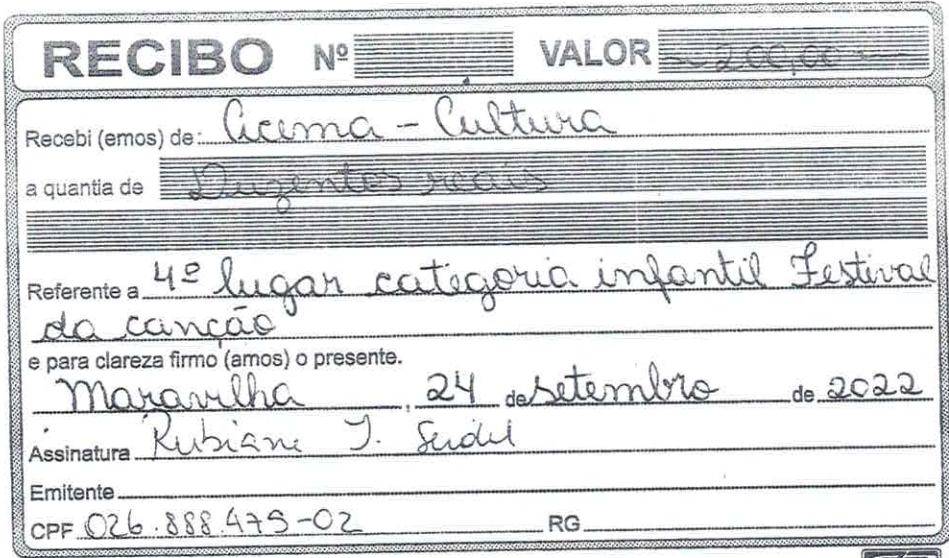 RECIBO Nº VALOR 200,00
Recebi (emos) de: Acema - Cultura
a quantia de Duzentos reais
Referente a 4º lugar categoria infantil Festival
da canção
e para clareza firmo (amos) o presente.
Maravilha, 24 de setembro de 2022
Assinatura Rubiane J. Seidel
Emitente
CPF 026.888.479-02 RG